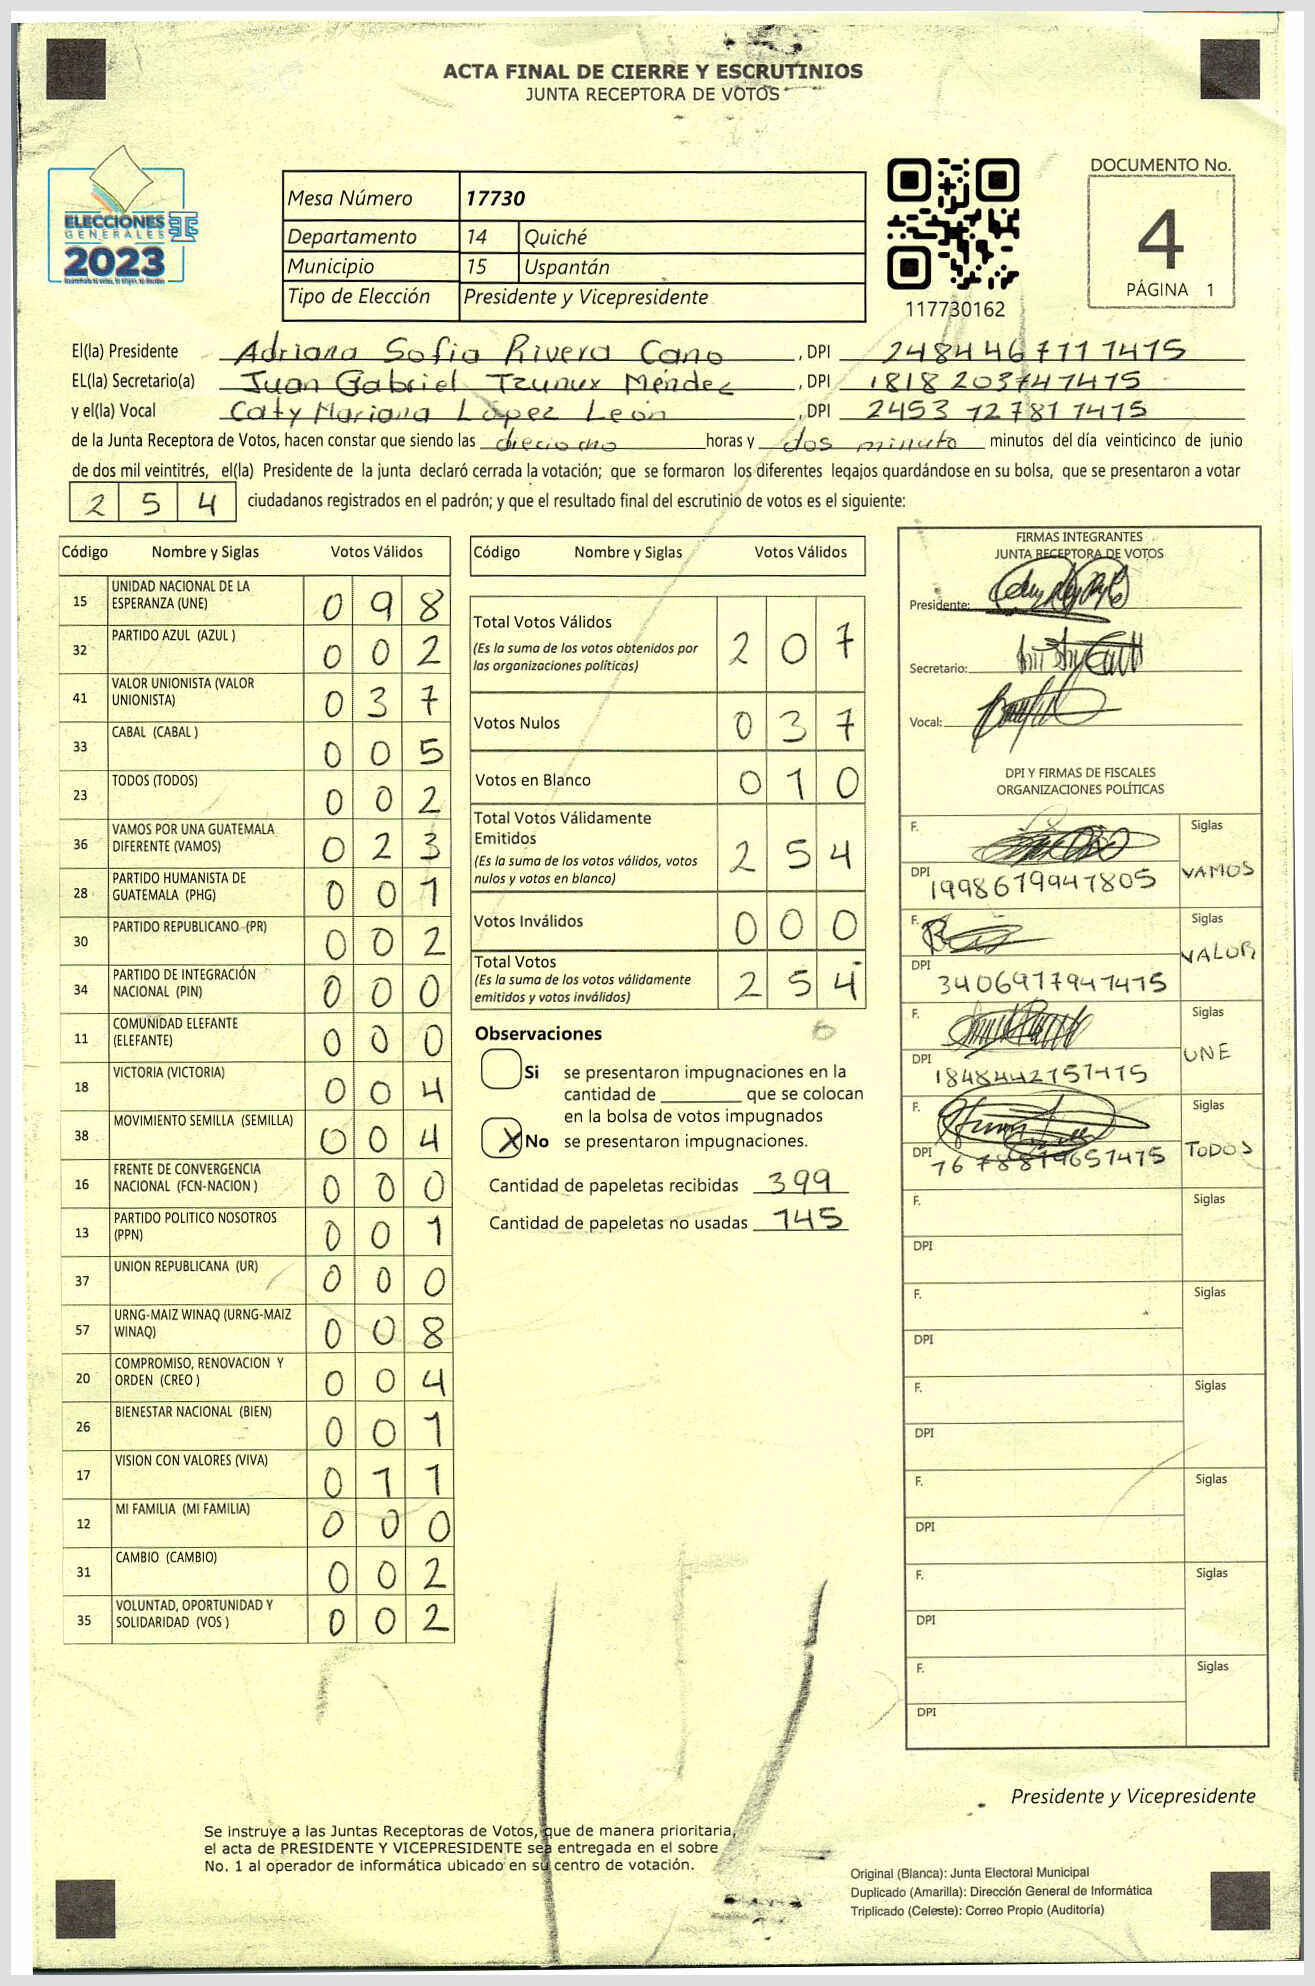 ACTA FINAL DE CIERRE Y ESCRUTINIOS
JUNTA RECEPTORA DE VOTOS
ELECCIONES
GENERALES
2023
Mesa Número 17730
Departamento 14 Quiché
Municipio 15 Uspantán
Tipo de Elección Presidente y Vicepresidente
117730162
DOCUMENTO No.
4
PÁGINA 1
El(la) Presidente Adriana Sofia Rivera Cano, DPI 2484467117415
EL(la) Secretario(a) Juan Gabriel Tzunux Méndez, DPI 1818203747415
y el(la) Vocal Caty Mariana López León, DPI 2453127817415
de la Junta Receptora de Votos, hacen constar que siendo las horas y dos minuto minutos del día veinticinco de junio
de dos mil veintitrés, el(la) Presidente de la junta declaró cerrada la votación; que se formaron los diferentes legajos guardándose en su bolsa, que se presentaron a votar
254 ciudadanos registrados en el padrón; y que el resultado final del escrutinio de votos es el siguiente:
Código Nombre y Siglas Votos Válidos
15 UNIDAD NACIONAL DE LA ESPERANZA (UNE) 098
32 PARTIDO AZUL (AZUL ) 002
41 VALOR UNIONISTA (VALOR UNIONISTA) 037
33 CABAL (CABAL ) 005
23 TODOS (TODOS) 002
36 VAMOS POR UNA GUATEMALA DIFERENTE (VAMOS) 023
28 PARTIDO HUMANISTA DE GUATEMALA (PHG) 001
30 PARTIDO REPUBLICANO (PR) 002
34 PARTIDO DE INTEGRACIÓN NACIONAL (PIN) 000
11 COMUNIDAD ELEFANTE (ELEFANTE) 000
18 VICTORIA (VICTORIA) 004
38 MOVIMIENTO SEMILLA (SEMILLA) 004
16 FRENTE DE CONVERGENCIA NACIONAL (FCN-NACION ) 000
13 PARTIDO POLITICO NOSOTROS (PPN) 001
37 UNION REPUBLICANA (UR) 000
57 URNG-MAIZ WINAQ (URNG-MAIZ WINAQ) 008
20 COMPROMISO, RENOVACION Y ORDEN (CREO ) 004
26 BIENESTAR NACIONAL (BIEN) 001
17 VISION CON VALORES (VIVA) 011
12 MI FAMILIA (MI FAMILIA) 000
31 CAMBIO (CAMBIO) 002
35 VOLUNTAD, OPORTUNIDAD Y SOLIDARIDAD (VOS ) 002
Código Nombre y Siglas Votos Válidos
Total Votos Válidos 207
(Es la suma de los votos obtenidos por
las organizaciones políticas)
Votos Nulos 037
Votos en Blanco 010
Total Votos Válidamente
Emitidos 254
(Es la suma de los votos válidos, votos
nulos y votos en blanco)
Votos Inválidos 000
Total Votos 254
(Es la suma de los votos válidamente
emitidos y votos inválidos)
Observaciones
Si se presentaron impugnaciones en la
cantidad de ________ que se colocan
en la bolsa de votos impugnados
X No se presentaron impugnaciones.
Cantidad de papeletas recibidas 399
Cantidad de papeletas no usadas 145
FIRMAS INTEGRANTES
JUNTA RECEPTORA DE VOTOS
Presidente:
Secretario:
Vocal:
DPI Y FIRMAS DE FISCALES
ORGANIZACIONES POLÍTICAS
F. Siglas
DPI 1998619947805 VAMOS
F. Siglas
DPI 3406977947415 VALOR
F. Siglas
DPI 1848442757415 UNE
F. Siglas
DPI TODOS
F. Siglas
DPI
F. Siglas
DPI
F. Siglas
DPI
F. Siglas
DPI
F. Siglas
DPI
F. Siglas
DPI
Presidente y Vicepresidente
Se instruye a las Juntas Receptoras de Votos, que de manera prioritaria,
el acta de PRESIDENTE Y VICEPRESIDENTE sea entregada en el sobre
No. 1 al operador de informática ubicado en su centro de votación.
Original (Blanca): Junta Electoral Municipal
Duplicado (Amarilla): Dirección General de Informática
Triplicado (Celeste): Correo Propio (Auditoría)